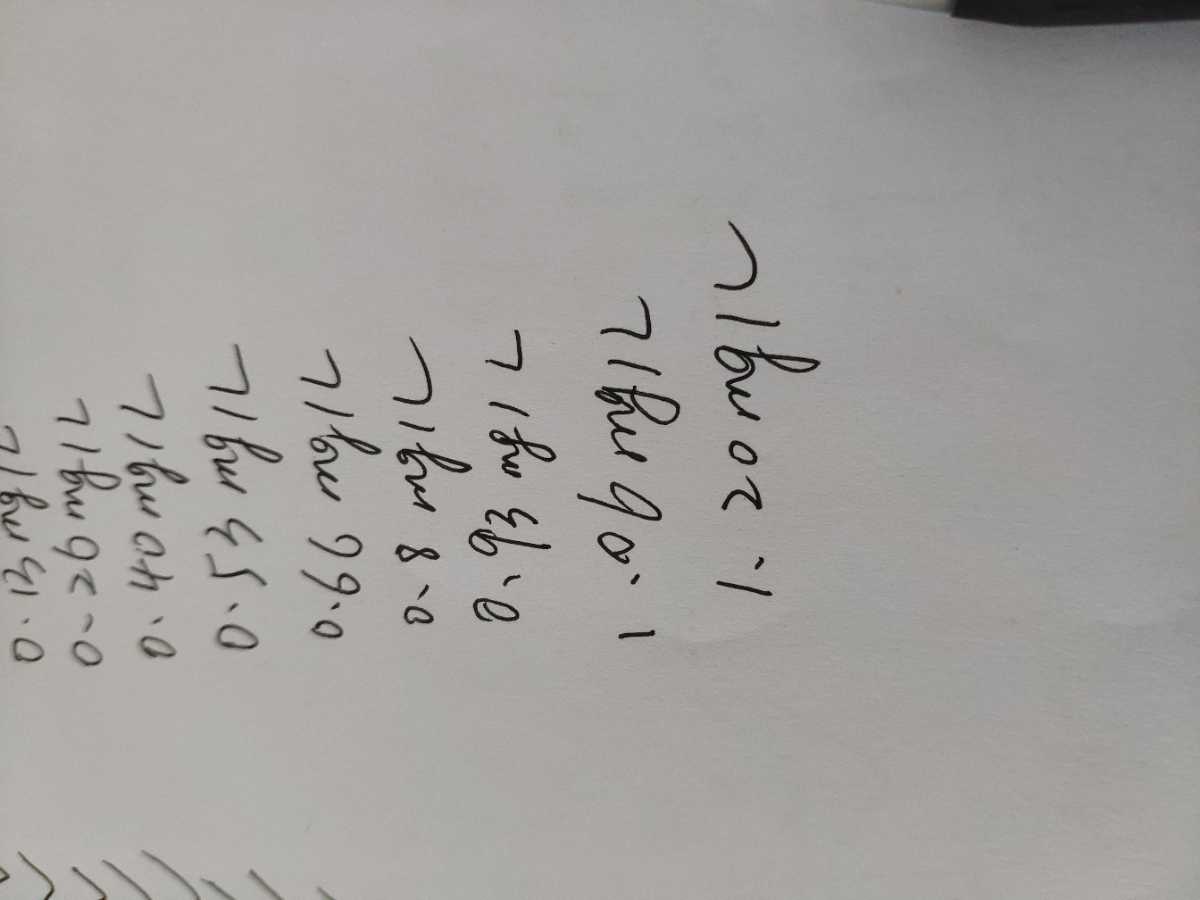 0.13 mg/L
0.26 mg/L
0.40 mg/L
0.53 mg/L
0.66 mg/L
0.8 mg/L
0.93 mg/L
1.06 mg/L
1.20 mg/L